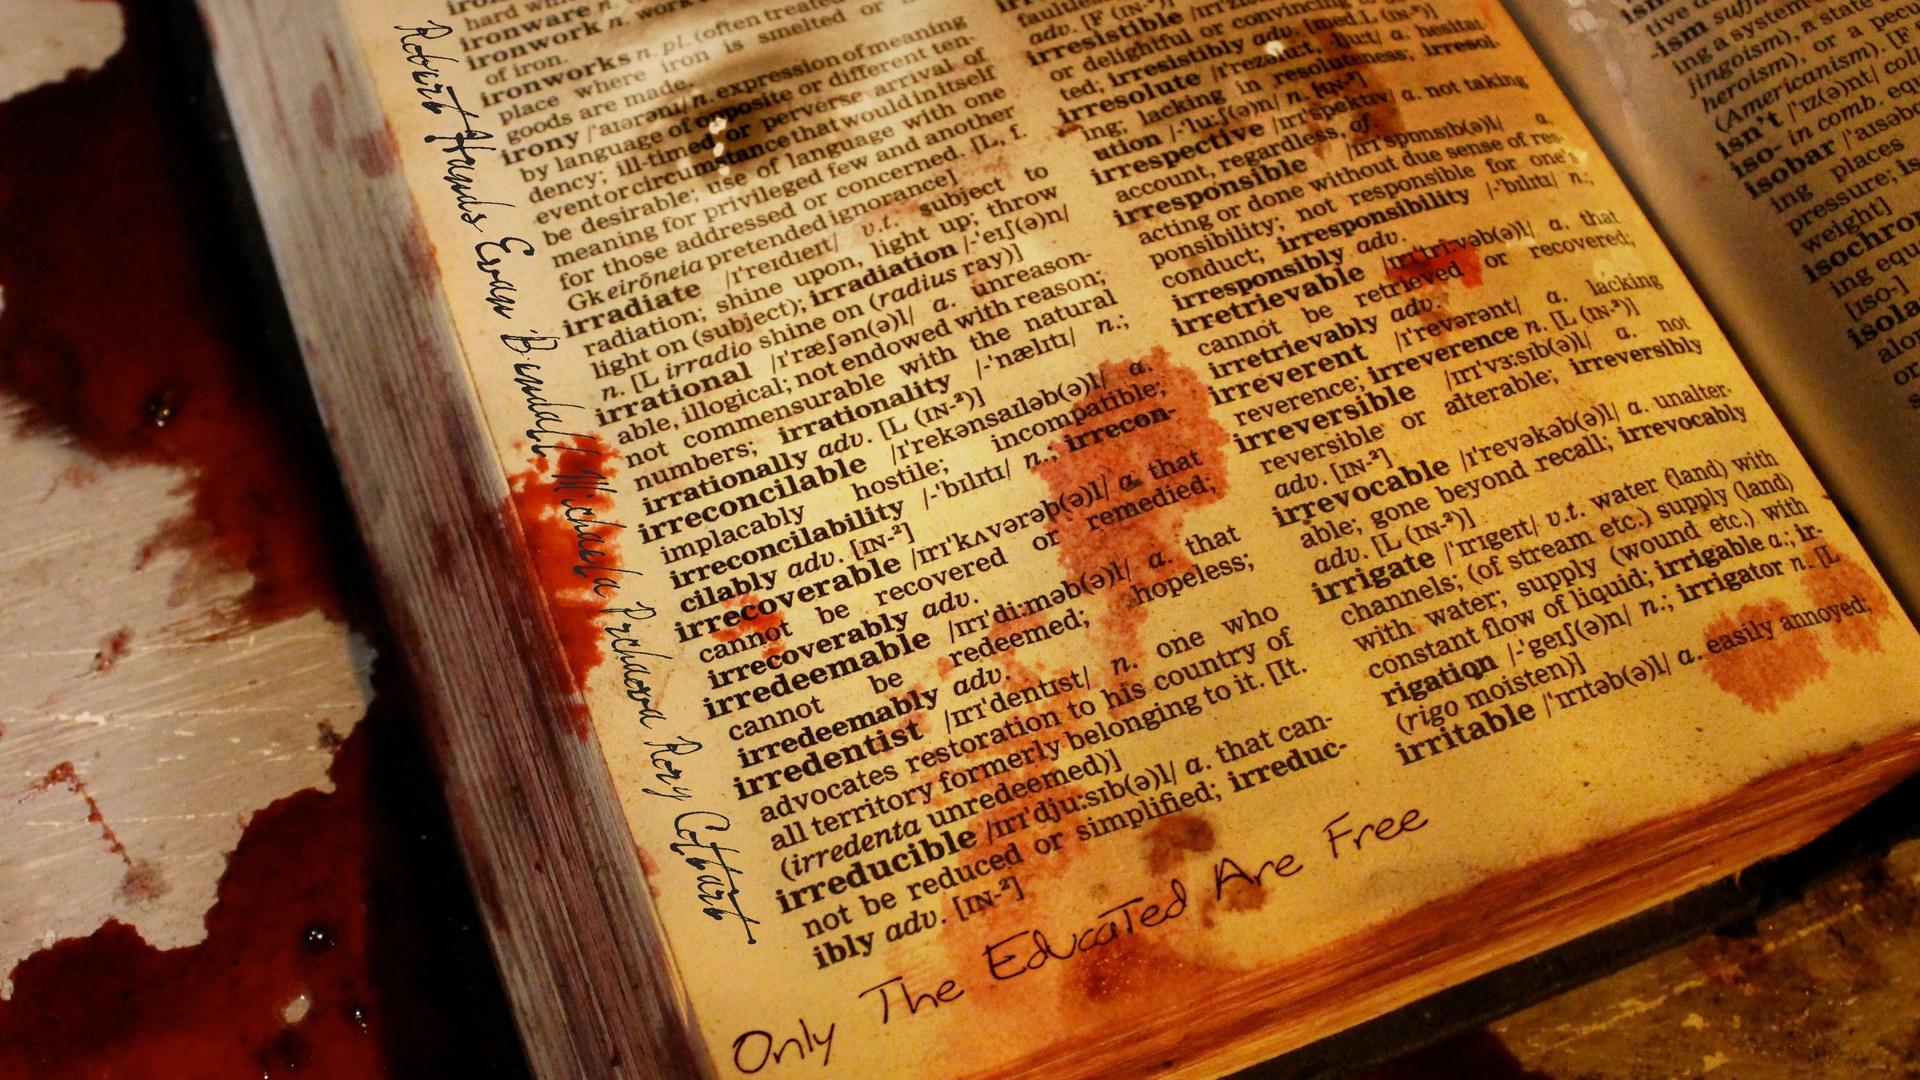 hard
ironware n.
ironwork n. work
of iron.
ironworks n. pl. (often treated
place where iron is smelted or
goods are made.
irony /ˈaɪərənɪ/ n. expression of meaning
by language of opposite or different ten-
dency; ill-timed or perverse arrival of
event or circumstance that would in itself
be desirable; use of language with one
meaning for privileged few and another
for those addressed or concerned. [L, f.
Gk eirōneia pretended ignorance]
irradiate /ɪˈreɪdɪeɪt/ v.t. subject to
radiation; shine upon, light up; throw
light on (subject); irradiation /-ˈeɪʃ(ə)n/
n. [L irradio shine on (radius ray)]
irrational /ɪˈræʃən(ə)l/ a. unreason-
able, illogical; not endowed with reason;
not commensurable with the natural
numbers; irrationality /-ˈnælɪtɪ/ n.;
irrationally adv. [L (IN-²)]
irreconcilable /ɪˈrekənsaɪləb(ə)l/ a.
implacably hostile; incompatible;
irreconcilability /-ˈbɪlɪtɪ/ n.; irrecon-
cilably adv. [IN-²]
irrecoverable /ɪrɪˈkʌvərəb(ə)l/ a. that
cannot be recovered or remedied;
irrecoverably adv.
irredeemable /ɪrɪˈdi:məb(ə)l/ a. that
cannot be redeemed; hopeless;
irredeemably adv.
irredentist /ɪrɪˈdentɪst/ n. one who
advocates restoration to his country of
all territory formerly belonging to it. [It.
(irredenta unredeemed)]
irreducible /ɪrɪˈdju:sɪb(ə)l/ a. that can-
not be reduced or simplified; irreduc-
ibly adv. [IN-²]
adv. [F (IN-²)]
irresistible
or delightful or convincing
ted; irresistibly adv. [med.L (IN-²)]
irresolute /ɪˈrezəlu:t/ a. hesitat-
ing, lacking in resoluteness; irresol-
ution /-ˈlu:ʃ(ə)n/ n. [IN-²]
irrespective /ɪrɪˈspektɪv/ a. not taking
account, regardless, of.
irresponsible /ɪrɪˈspɒnsɪb(ə)l/ a.
acting or done without due sense of res-
ponsibility; not responsible for one's
conduct; irresponsibility /-ˈbɪlɪtɪ/ n.;
irresponsibly adv.
irretrievable /ɪrɪˈtri:vəb(ə)l/ a. that
cannot be retrieved or recovered;
irretrievably adv.
irreverent /ɪˈrevərənt/ a. lacking
reverence; irreverence n. [L (IN-²)]
irreversible /ɪrɪˈvɜ:sɪb(ə)l/ a. not
reversible or alterable; irreversibly
adv. [IN-²]
irrevocable /ɪˈrevəkəb(ə)l/ a. unalter-
able; gone beyond recall; irrevocably
adv. [L (IN-²)]
irrigate /ˈɪrɪgeɪt/ v.t. water (land) with
channels; (of stream etc.) supply (land)
with water; supply (wound etc.) with
constant flow of liquid; irrigable a.; ir-
rigation /-ˈgeɪʃ(ə)n/ n.; irrigator n. [L
(rigo moisten)]
irritable /ˈɪrɪtəb(ə)l/ a. easily annoyed;
-ism suffix
ing a system
jingoism), a state
heroism), or a
(Americanism). [F
isn't /ˈɪz(ə)nt/
iso- in comb. equ
isobar /ˈaɪsəbɑ
ing places
pressure; is
weight]
isochron
ing equ
[ISO-]
isola
alon
or
Robert Hands Evan Bindall Michaela Prchaova Rory Cothart
Only The Educated Are Free